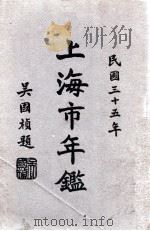 民國三十五年
上海市年鑑
吴國楨題
www.mtoou.info